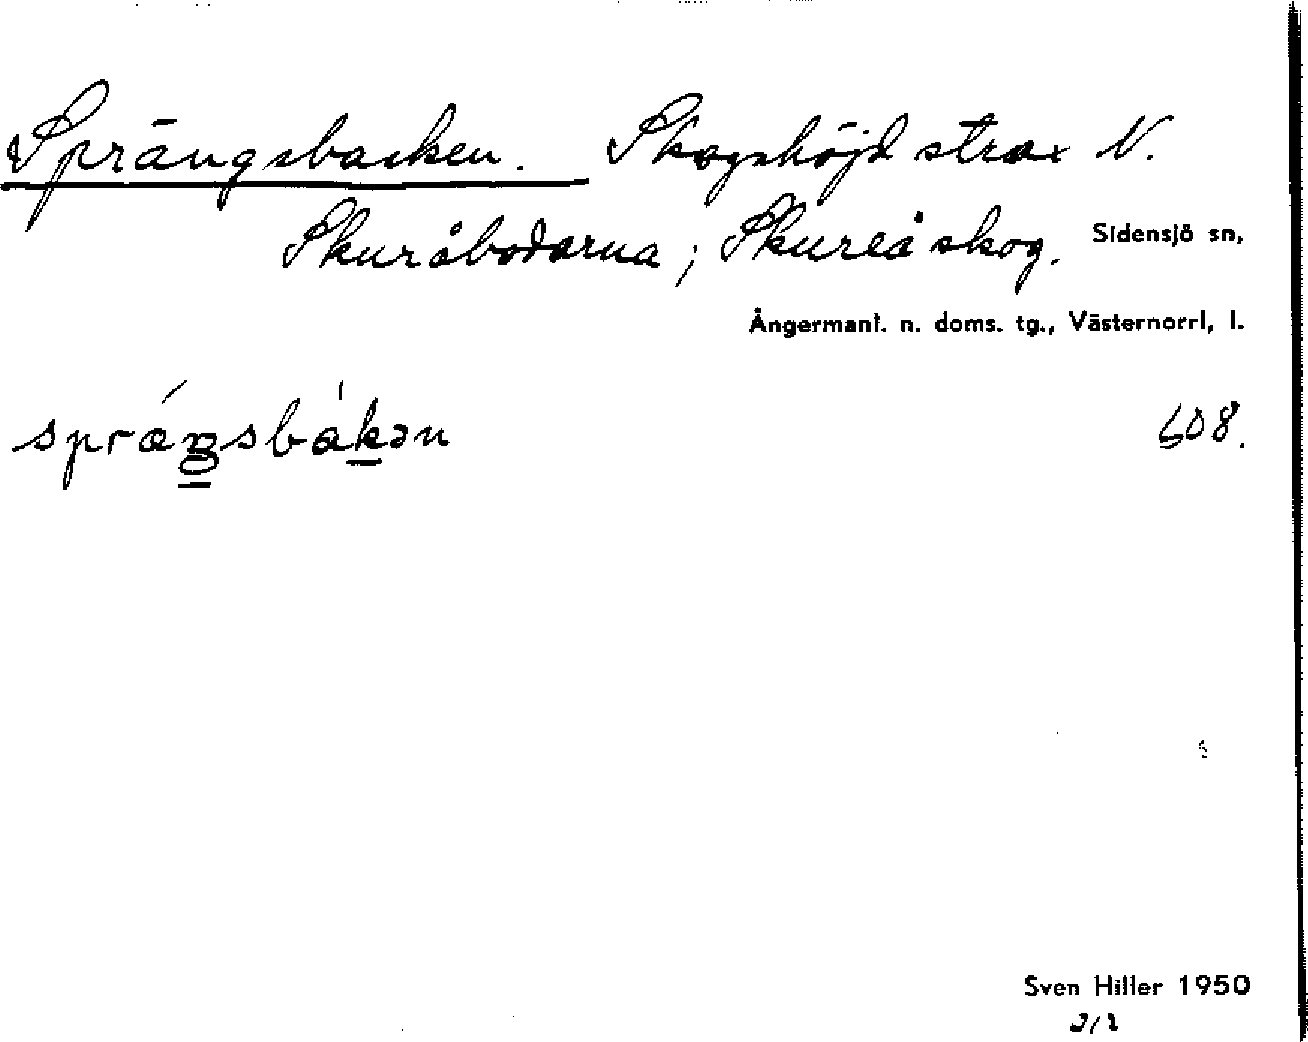 Sprängsbacken. Skogshöjd strax N.
Skuråbodarna; Skureå skog. Sidensjö sn,
Ångermanl. n. doms. tg., Västernorrl, l.
språŋsbákən 608.
Sven Hiller 1950
2/1